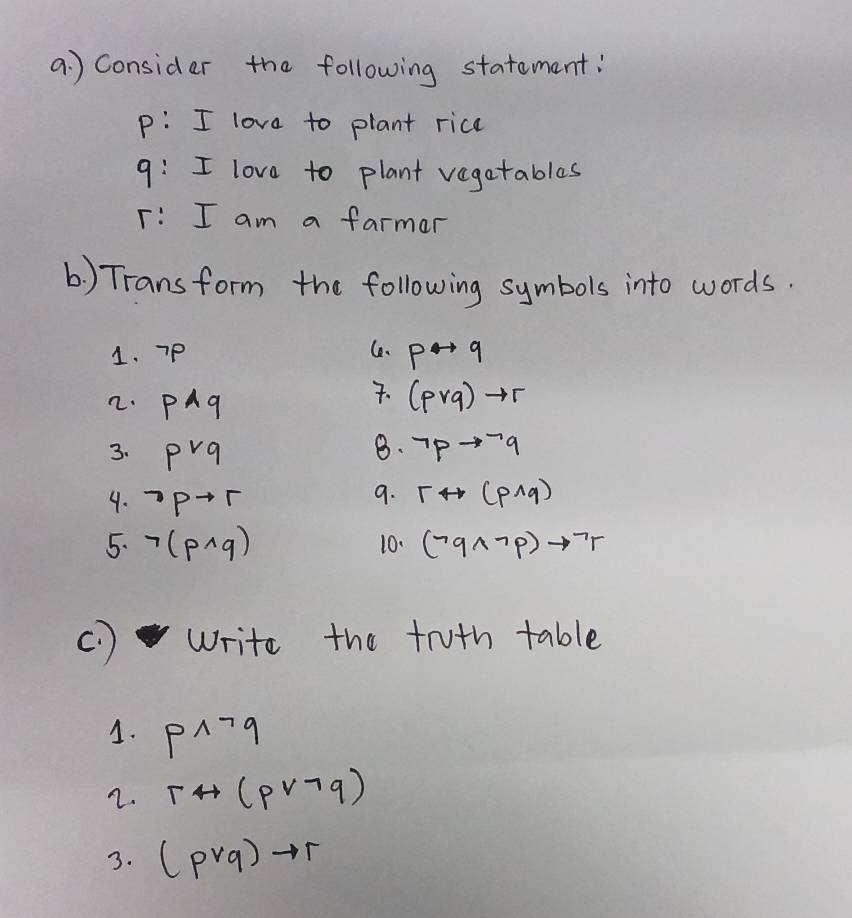 a.) Consider the following statement:
p: I love to plant rice
q: I love to plant vegetables
r: I am a farmer
b.) Transform the following symbols into words.
1. ¬p
2. p∧q
3. p∨q
4. ¬p→r
5. ¬(p∧q)
6. p↔q
7. (p∨q)→r
8. ¬p→¬q
9. r↔(p∧q)
10. (¬q∧¬p)→¬r
c.) Write the truth table
1. p∧¬q
2. r↔(p∨¬q)
3. (p∨q)→r